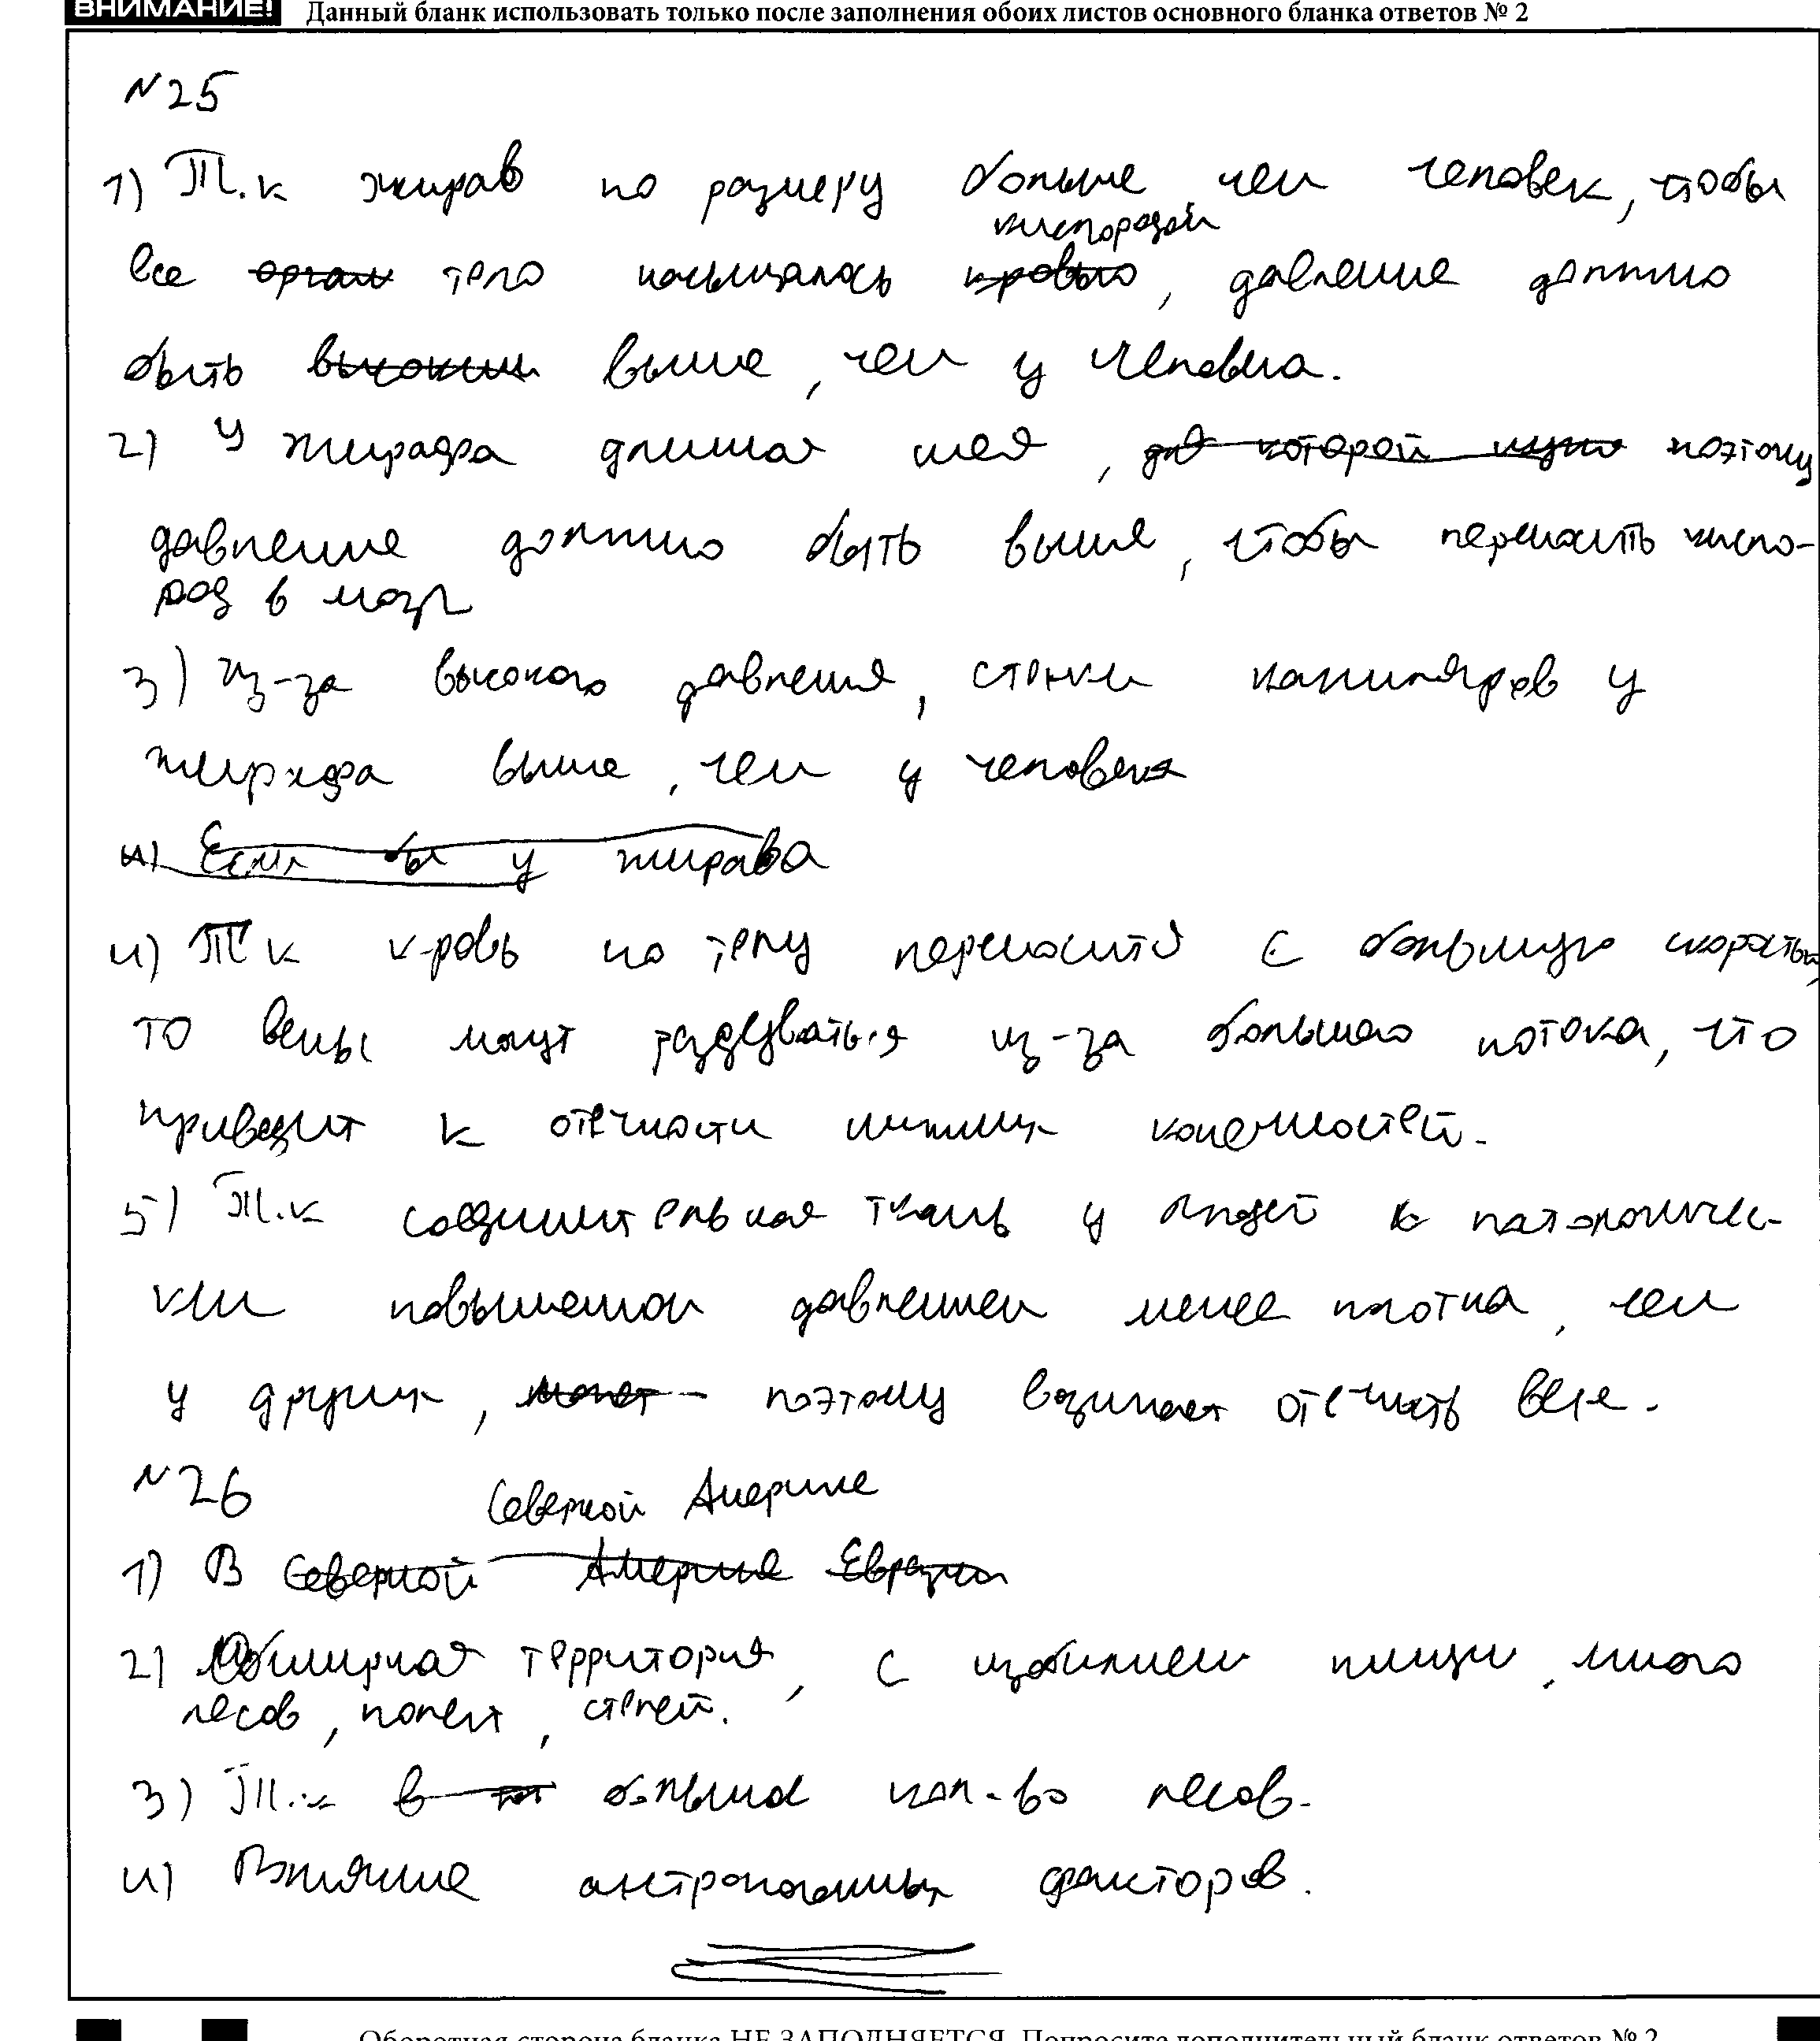 ВНИМАНИЕ! Данный бланк использовать только после заполнения обоих листов основного бланка ответов № 2
№25
1) Т.к жирав по размеру больше чем человек, чтобы
кислородом
все орган тело насыщалось кровью, давление должно
быть высоким выше, чем у человека.
2) У жирафа длиная шея, до которой нужно поэтому
давление должно быть выше, чтобы переносить кисло-
род в мозг
3) Из-за высокого давления, стенки капиляров у
жирафа выше, чем у человека
4) Если бы у жирава
4) Т к кровь по телу переносится с большую скоростью,
то вены могут раздуваться из-за большого потока, что
приведит к отёчности нижних конечностей.
5) Т.к соединительная ткань у людей к патологичес-
ким повышеном давлением менее плотна, чем
у других, может поэтому возникает отёчность вене.
№26
Северной Америке
1) В Северной Америке Евразии
2) Обширная территория, с изобилием пищи, много
лесов, полей, степей.
3) Т.к в большое кол-во лесов.
4) Влияние антропогенных факторов.
Оборотная сторона бланка НЕ ЗАПОЛНЯЕТСЯ. Попросите дополнительный бланк ответов № 2